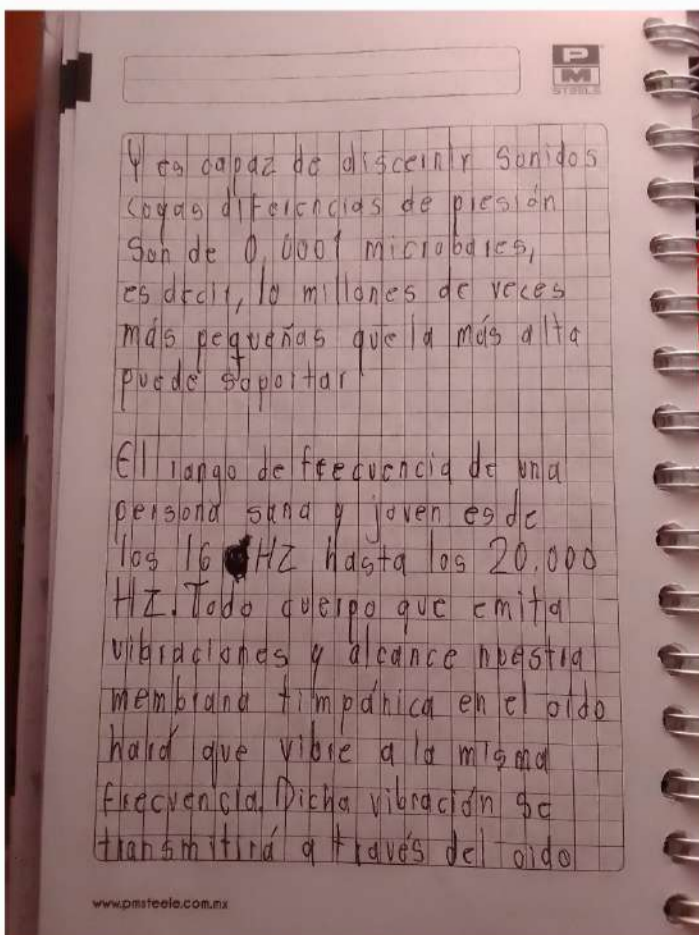 P
M
STEELE
Y es capaz de discernir sonidos
cuyas diferencias de presión
son de 0,0001 microbares,
es decir, 10 millones de veces
más pequeñas que la más alta
puede soportar
El rango de frecuencia de una
persona sana y joven es de
los 16 HZ hasta los 20.000
HZ. Todo cuerpo que emita
vibraciones y alcance nuestra
membrana timpánica en el oído
hará que vibre a la misma
frecuencia. Dicha vibración se
transmitirá a través del oido
www.pmsteele.com.mx